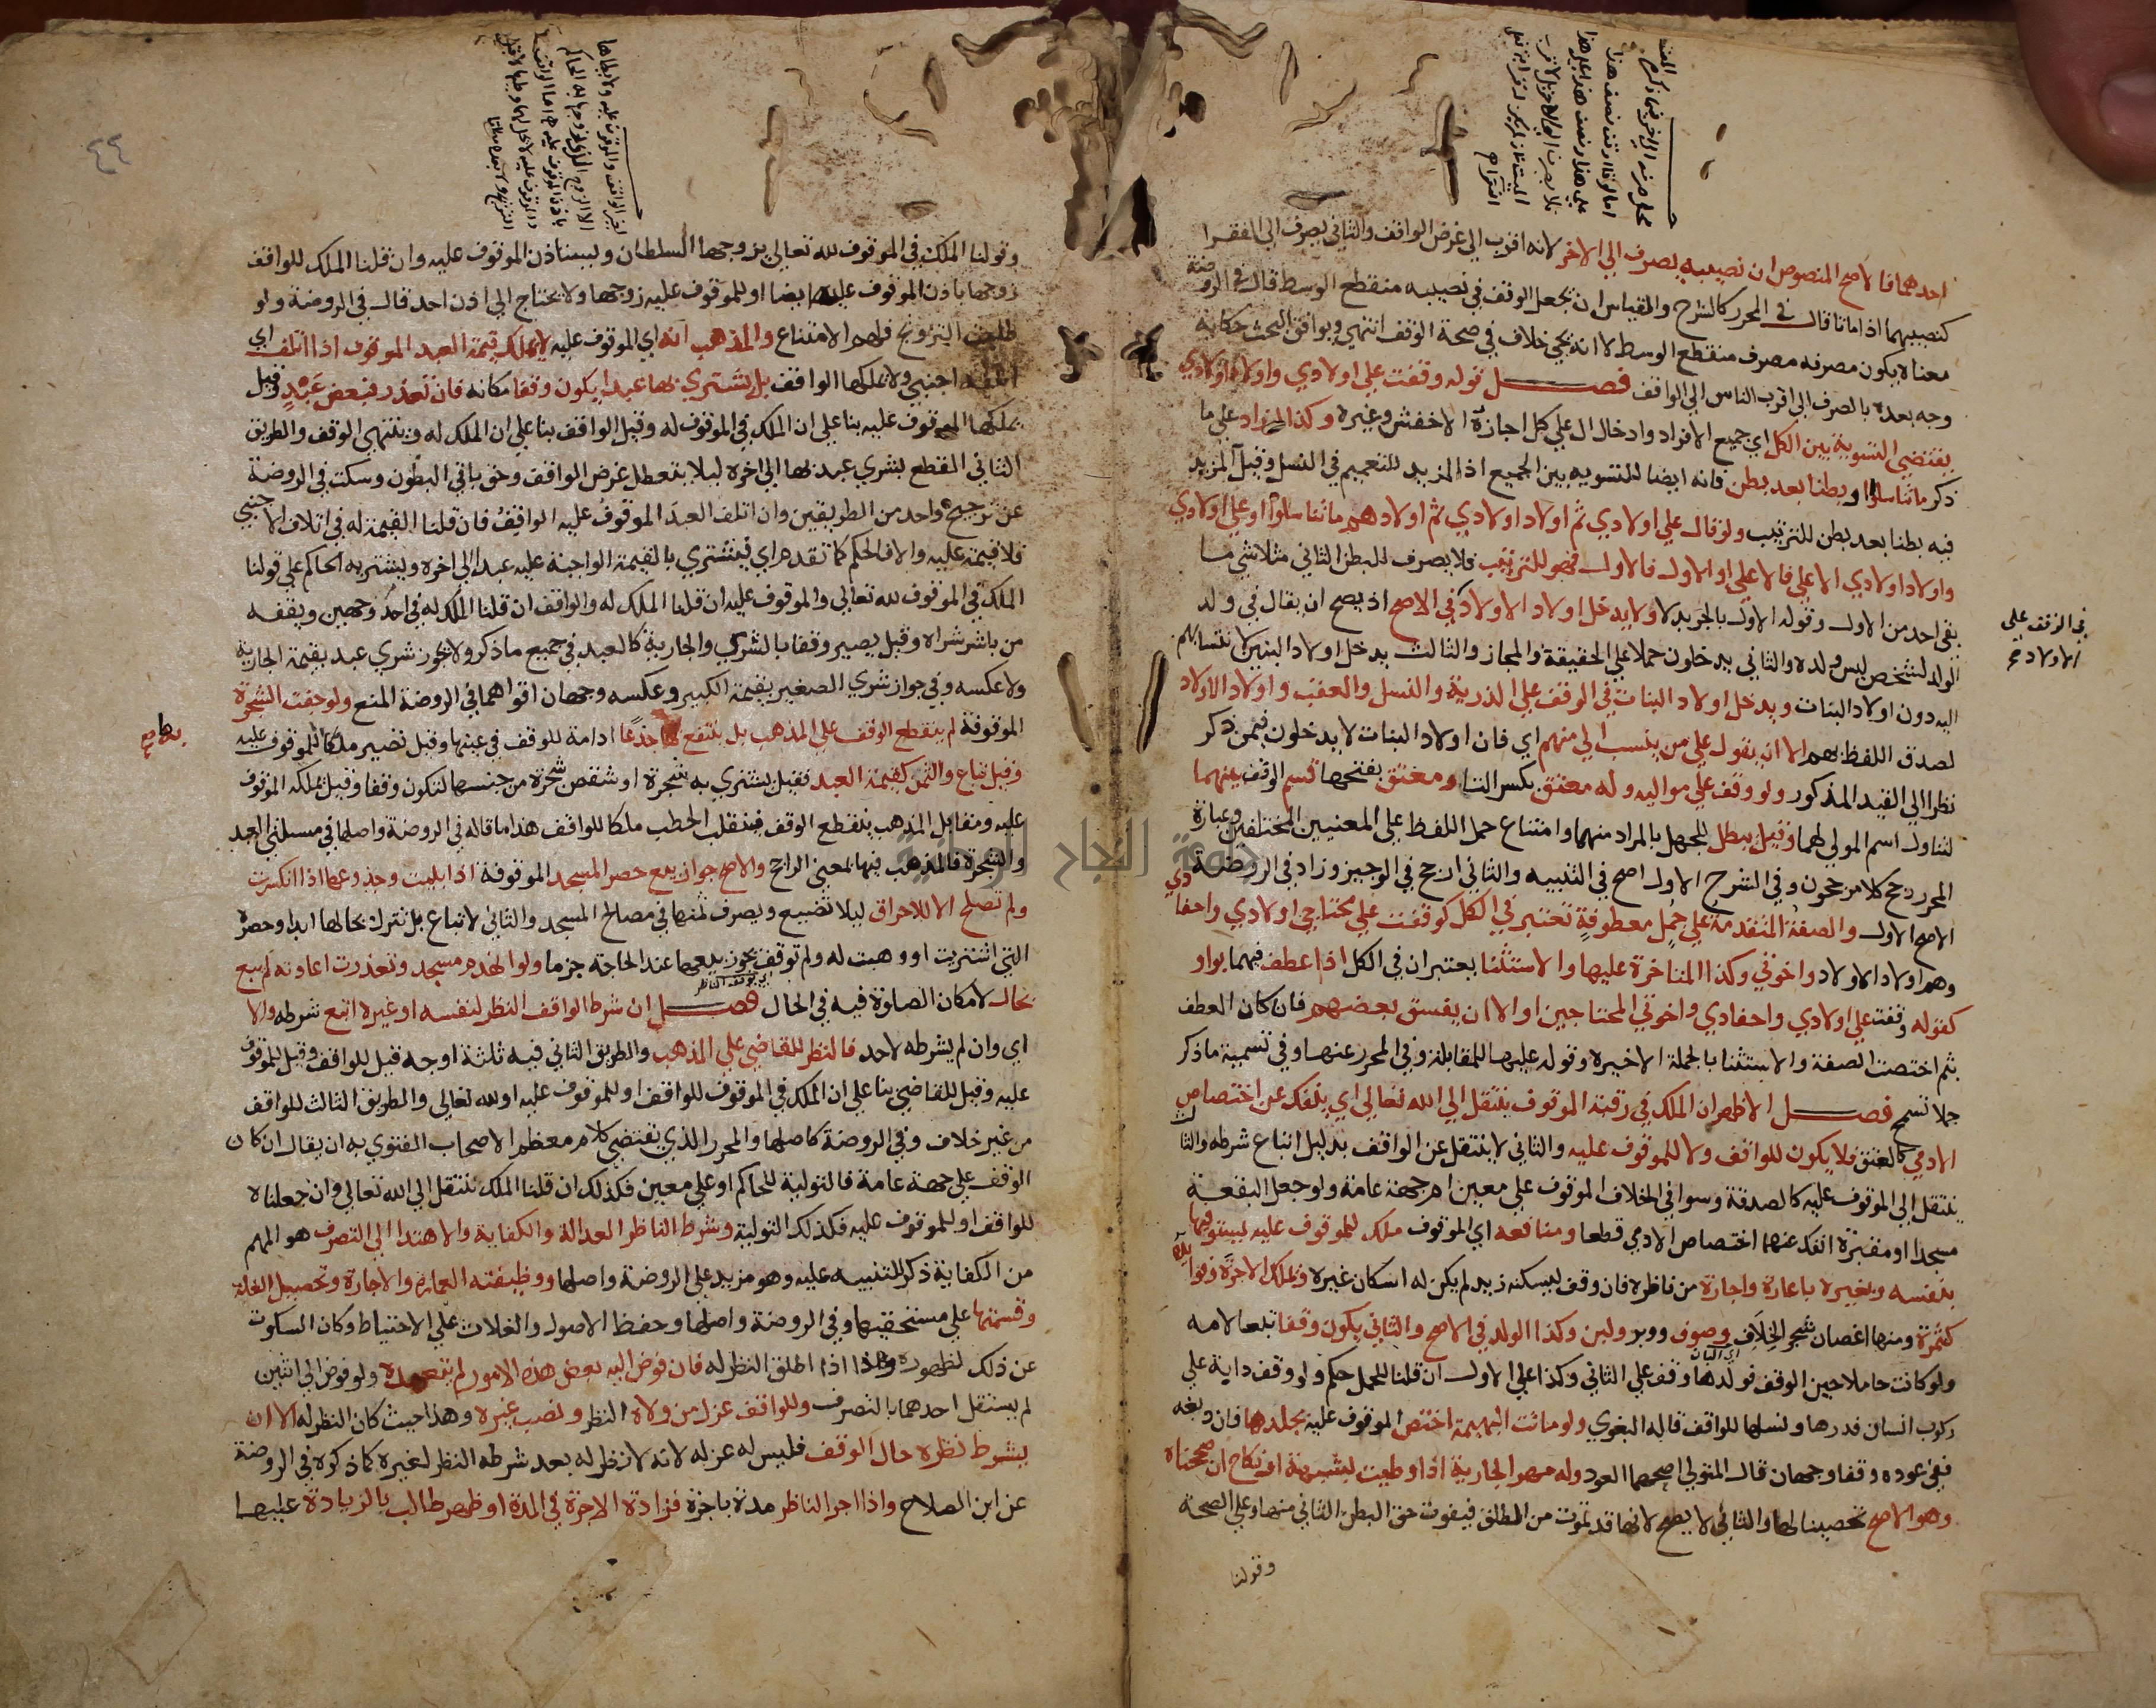 احدهما فالاصح المنصوص ان نصيبه يصرف الي الاخر لانه اقرب الي غرض الواقف والثاني يصرف الي الفقرا
كنصيبهما اذا ماتا قال في المحرر كالشرح والقياس ان يجعل الوقف في نصيبه منقطع الوسط قال في الروضة
معناه يكون مصرفه مصرف منقطع الوسط لا انه يجي خلاف في صحة الوقف انتهي ويوافق البحث حكاية
وجه بعده بالصرف الي اقرب الناس الي الواقف فصل قوله وقفت علي اولادي واولاد اولادي
يقتضي التسوية بين الكل اي جميع الافراد وادخال ال علي كل اجازه الاخفش وغيره وكذا لو زاد علي ما
ذكر ما تناسلوا او بطنا بعد بطن فانه ايضا للتسويه بين الجميع اذ المزيد للتعميم في النسل وقيل المزيد
فيه بطنا بعد بطن للترتيب ولو قال علي اولادي ثم اولاد اولادي ثم اولادهم ما تناسلوا او علي اولادي
واولاد اولادي الاعلي فالاعلي او الاول فالاول فهو للترتيب فلا يصرف للبطن الثاني مثلا شي ما
بقي احد من الاول وقوله الاول بالجر بدلا ولا يدخل اولاد الاولاد في الاصح اذ يصح ان يقال في ولد
الولد لشخص ليس ولده والثاني يدخلون حملا علي الحقيقة والمجاز والثالث يدخل اولاد البنين لانتسابهم
اليه دون اولاد البنات ويدخل اولاد البنات في الوقف علي الذرية والنسل والعقب واولاد الاولاد
لصدق اللفظ بهم الا ان يقول علي من ينسب الي منهم اي فان اولاد البنات لا يدخلون فيمن ذكر
نظرا الي القيد المذكور ولو وقف علي مواليه وله معتق بكسر التا ومعتق بفتحها قسم الوقف بينهما
لتناول اسم المولي لهما وقيل يبطل للجهل بالمراد منهما وامتناع حمل اللفظ علي المعنيين المختلفين وعبارة
المحرر رجح كلا مرجحون وفي الشرح الاول اصح في التنبيه والثاني ارجح في الوجيز وزاد في الروضة
الاصح الاول والصفة المتقدمة علي جمل معطوفة تعتبر في الكل كوقفت علي محتاجي اولادي واحفادي
وهم اولاد الاولاد واخوتي وكذا المتاخرة عليها والاستثنا يعتبران في الكل اذا عطف فيهما بواو
كقوله وقفت علي اولادي واحفادي واخوتي المحتاجين او الا ان يفسق بعضهم فان كان العطف
بثم اختصت الصفة والاستثنا بالجملة الاخيرة وقوله عليها للمقابلة وفي المحرر عنها وفي تسمية ما ذكر
جملا تسمح فصل الاظهر ان الملك في رقبة الموقوف ينتقل الي الله تعالي اي ينفك عن اختصاص
الادمي كالعتق فلا يكون للواقف ولا للموقوف عليه والثاني لا ينتقل عن الواقف بدليل اتباع شرطه والثالث
ينتقل الي الموقوف عليه كالصدقة وسوا في الخلاف الموقوف علي معين ام جهة عامة ولو جعل البقعة
مسجدا او مقبرة انفك عنهما اختصاص الادمي قطعا ومنافعه اي الموقوف ملك للموقوف عليه يستوفيها
بنفسه وبغيره باعارة واجارة من ناظره فان وقف ليسكنه زيد لم يكن له اسكان غيره ويملك الاجرة وفوايده
كثمرة ومنها اغصان شجر الخلاف وصوف ووبر ولبن وكذا الولد في الاصح والثاني يكون وقفا تبعا لامه
ولو كانت حاملا حين الوقف فولدها وقف علي الثاني وكذا علي الاول ان قلنا للحمل حكم ولو وقف داية علي
ركوب انسان فدرها ونسلها للواقف قاله البغوي ولو ماتت البهيمة اختص الموقوف عليه بجلدها فان دبغه
ففي عوده وقفا وجهان قال المتولي اصحهما العود وله مهر الجارية اذا وطيت بشبهة او نكاح ان صححناه
وهو الاصح تحصينا لها والثاني لا يصح لانها قد تموت من الطلق فيفوت حق البطن الثاني منها وعلي الصحة
وقولنا
في الوقف علي
الاولاد
وقولنا الملك في الموقوف لله تعالي يزوجها السلطان ويستاذن الموقوف عليه وان قلنا الملك للواقف
زوجها باذن الموقوف عليه ايضا او للموقوف عليه زوجها ولا يحتاج الي اذن احد قال في الروضة ولو
طلبت التزويج فلهم الامتناع والمذهب انه اي الموقوف عليه لا يملك قيمة العبد الموقوف اذا اتلف اي
اتلفه اجنبي ولا يملكها الواقف بل يشتري بها عبد ايكون وقفا مكانه فان تعذر فبعض عبد وقيل
يملكها الموقوف عليه بنا علي ان الملك في الموقوف له وقيل الواقف بنا علي ان الملك له وينتهي الوقف والطريق
الثاني القطع بشري عبد بها الي اخره ليلا يتعطل غرض الواقف وحق باقي البطون وسكت في الروضة
عن ترجيح واحد من الطريقين وان اتلف العبد الموقوف عليه الواقف فان قلنا القيمة له في اتلاف الاجنبي
فلا قيمة عليه والا فالحكم كما تقدم اي فيشتري بالقيمة الواجبة عليه عبد الي اخره ويشتريه الحاكم علي قولنا
الملك في الموقوف لله تعالي والموقوف عليه ان قلنا الملك له والواقف ان قلنا الملك له في احد وجهين ويقفه
من باشر شراه وقيل يصير وقفا بالشري والجارية كالعبد في جميع ما ذكر ولا يجوز شري عبد بقيمة الجارية
ولا عكسه وفي جواز شري الصغير بقيمة الكبير وعكسه وجهان اقواهما في الروضة المنع ولو جفت الشجرة
الموقوفة لم ينقطع الوقف علي المذهب بل ينتفع بها جذعا ادامة للوقف في عينها وقيل تصير ملكا للموقوف عليه
وقيل تباع والثمن كقيمة العبد فقيل يشتري به شجرة او شقص شجرة من جنسها لتكون وقفا وقيل يملكه الموقوف
عليه ومقابل المذهب ينقطع الوقف فينقلب الحطب ملكا للواقف هذا ما قاله في الروضة واصلها في مسئلتي العبد
والشجرة فالمذهب فيها بمعني الراجح والاصح جواز بيع حصر المسجد الموقوفة اذا بليت وجذوعه اذا انكسرت
ولم تصلح الا للاحراق ليلا تضيع ويصرف ثمنها في مصالح المسجد والثاني لا تباع بل تترك بحالها ابدا وحصره
التي اشتريت او وهبت له ولم توقف يجوز بيعها عند الحاجة جزما ولو انهدم مسجد وتعذرت اعادته لم يبع
بحال لامكان الصلوة فيه في الحال فصل ان شرط الواقف النظر لنفسه او غيره اتبع شرطه والا
اي وان لم يشرطه لاحد فالنظر للقاضي علي المذهب والطريق الثاني فيه ثلثة اوجه قيل للواقف وقيل للموقوف
عليه وقيل للقاضي بنا علي ان الملك في الموقوف للواقف او للموقوف عليه او لله تعالي والطريق الثالث للواقف
من غير خلاف وفي الروضة كاصلها والمحرر الذي يقتضي كلام معظم الاصحاب الفتوي به ان يقال ان كان
الوقف علي جهة عامة فالتولية للحاكم او علي معين فكذلك ان قلنا الملك ينتقل الي الله تعالي وان جعلناه
للواقف او للموقوف عليه فكذلك التولية وشرط الناظر العدالة والكفاية والاهتدا الي التصرف هو المهم
من الكفاية ذكر للتنبيه عليه وهو مزيد علي الروضة واصلها ووظيفته العمارة والاجارة وتحصيل الغلة
وقسمتها علي مستحقيها وفي الروضة واصلها وحفظ الاصول والغلات علي الاحتياط وكان السكوت
عن ذلك لظهوره وهذا اذا اطلق النظر له فان فوض اليه بعض هذه الامور لم يتعده ولو فوض الي اثنين
لم يستقل احدهما بالتصرف وللواقف عزل من ولاه النظر ونصب غيره وهذا حيث كان النظر له الا ان
يشرط نظره حال الوقف فليس له عزله لانه لا نظر له بعد شرطه النظر لغيره كما ذكره في الروضة
عن ابن الصلاح واذا اجر الناظر مدة باجرة فزادت الاجرة في المدة او ظهر طالب بالزيادة عليها
٤٤
جامعة النجاح الوطنية